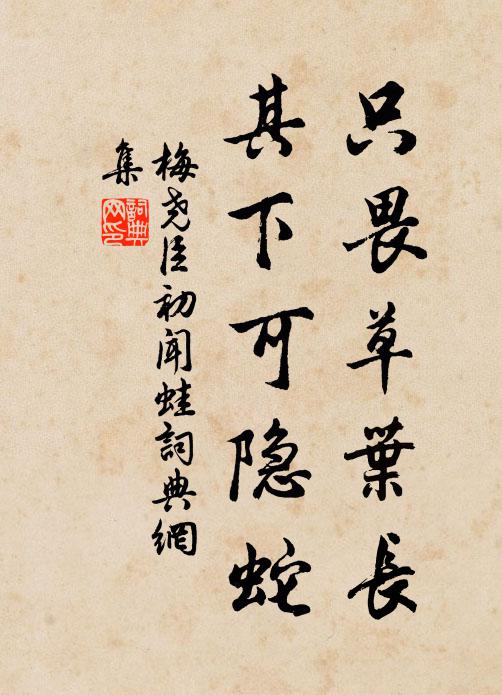 只畏草葉長
其下可隐蛇
梅尧臣初闻蛙詞典網
集
詞典网印